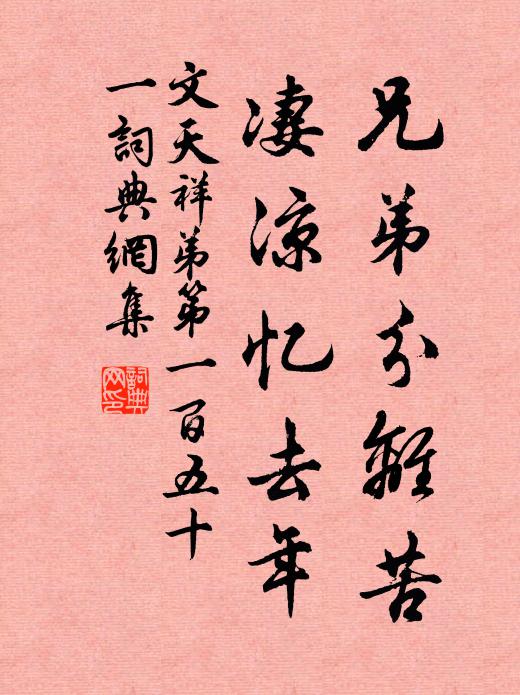 兄弟分離苦
凄涼忆去年
文天祥弟第一百五十
一詞典網集
詞典网印